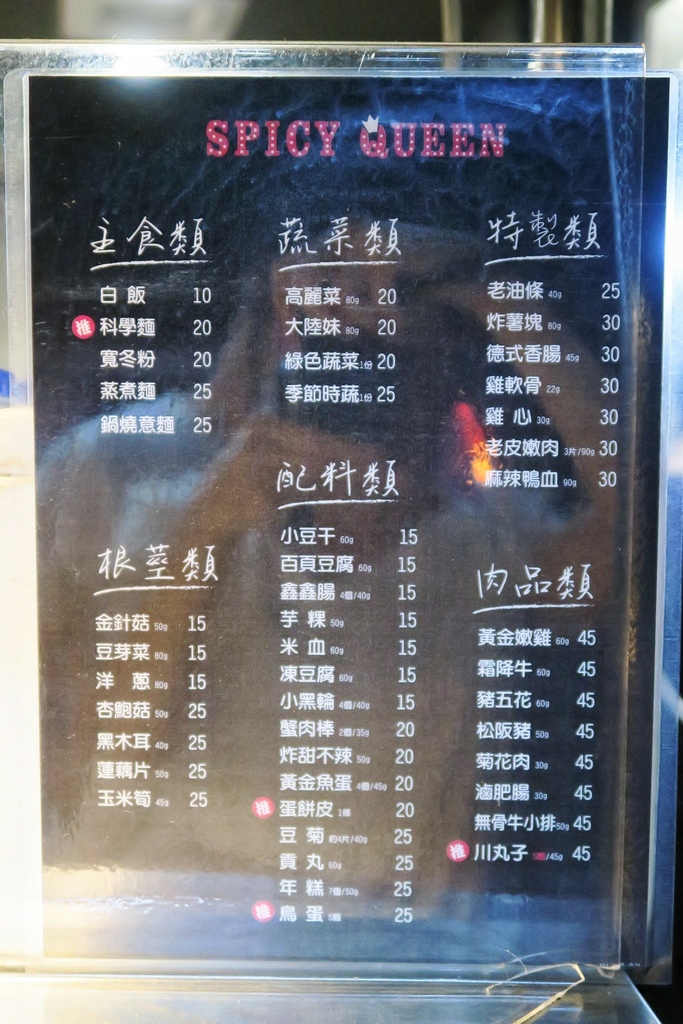 SPICY QUEEN
主食類
白飯 10
推 科學麵 20
寬冬粉 20
蒸煮麵 25
鍋燒意麵 25
蔬菜類
高麗菜 80g 20
大陸妹 80g 20
綠色蔬菜 1份 20
季節時蔬 1份 25
特製類
老油條 40g 25
炸薯塊 80g 30
德式香腸 45g 30
雞軟骨 22g 30
雞心 30g 30
老皮嫩肉 3片/90g 30
麻辣鴨血 90g 30
根莖類
金針菇 50g 15
豆芽菜 80g 15
洋蔥 80g 15
杏鮑菇 50g 25
黑木耳 40g 25
蓮藕片 50g 25
玉米筍 45g 25
配料類
小豆干 60g 15
百頁豆腐 60g 15
鑫鑫腸 4個/40g 15
芋粿 50g 15
米血 60g 15
凍豆腐 60g 15
小黑輪 4個/40g 15
蟹肉棒 2個/35g 20
炸甜不辣 50g 20
黃金魚蛋 4個/45g 20
推 蛋餅皮 1條 20
豆菊 約4片/40g 25
貢丸 60g 25
年糕 7個/50g 25
推 鳥蛋 5顆 25
肉品類
黃金嫩雞 60g 45
霜降牛 60g 45
豬五花 60g 45
松阪豬 50g 45
菊花肉 30g 45
滷肥腸 30g 45
無骨牛小排 50g 45
推 川丸子 5個/45g 45